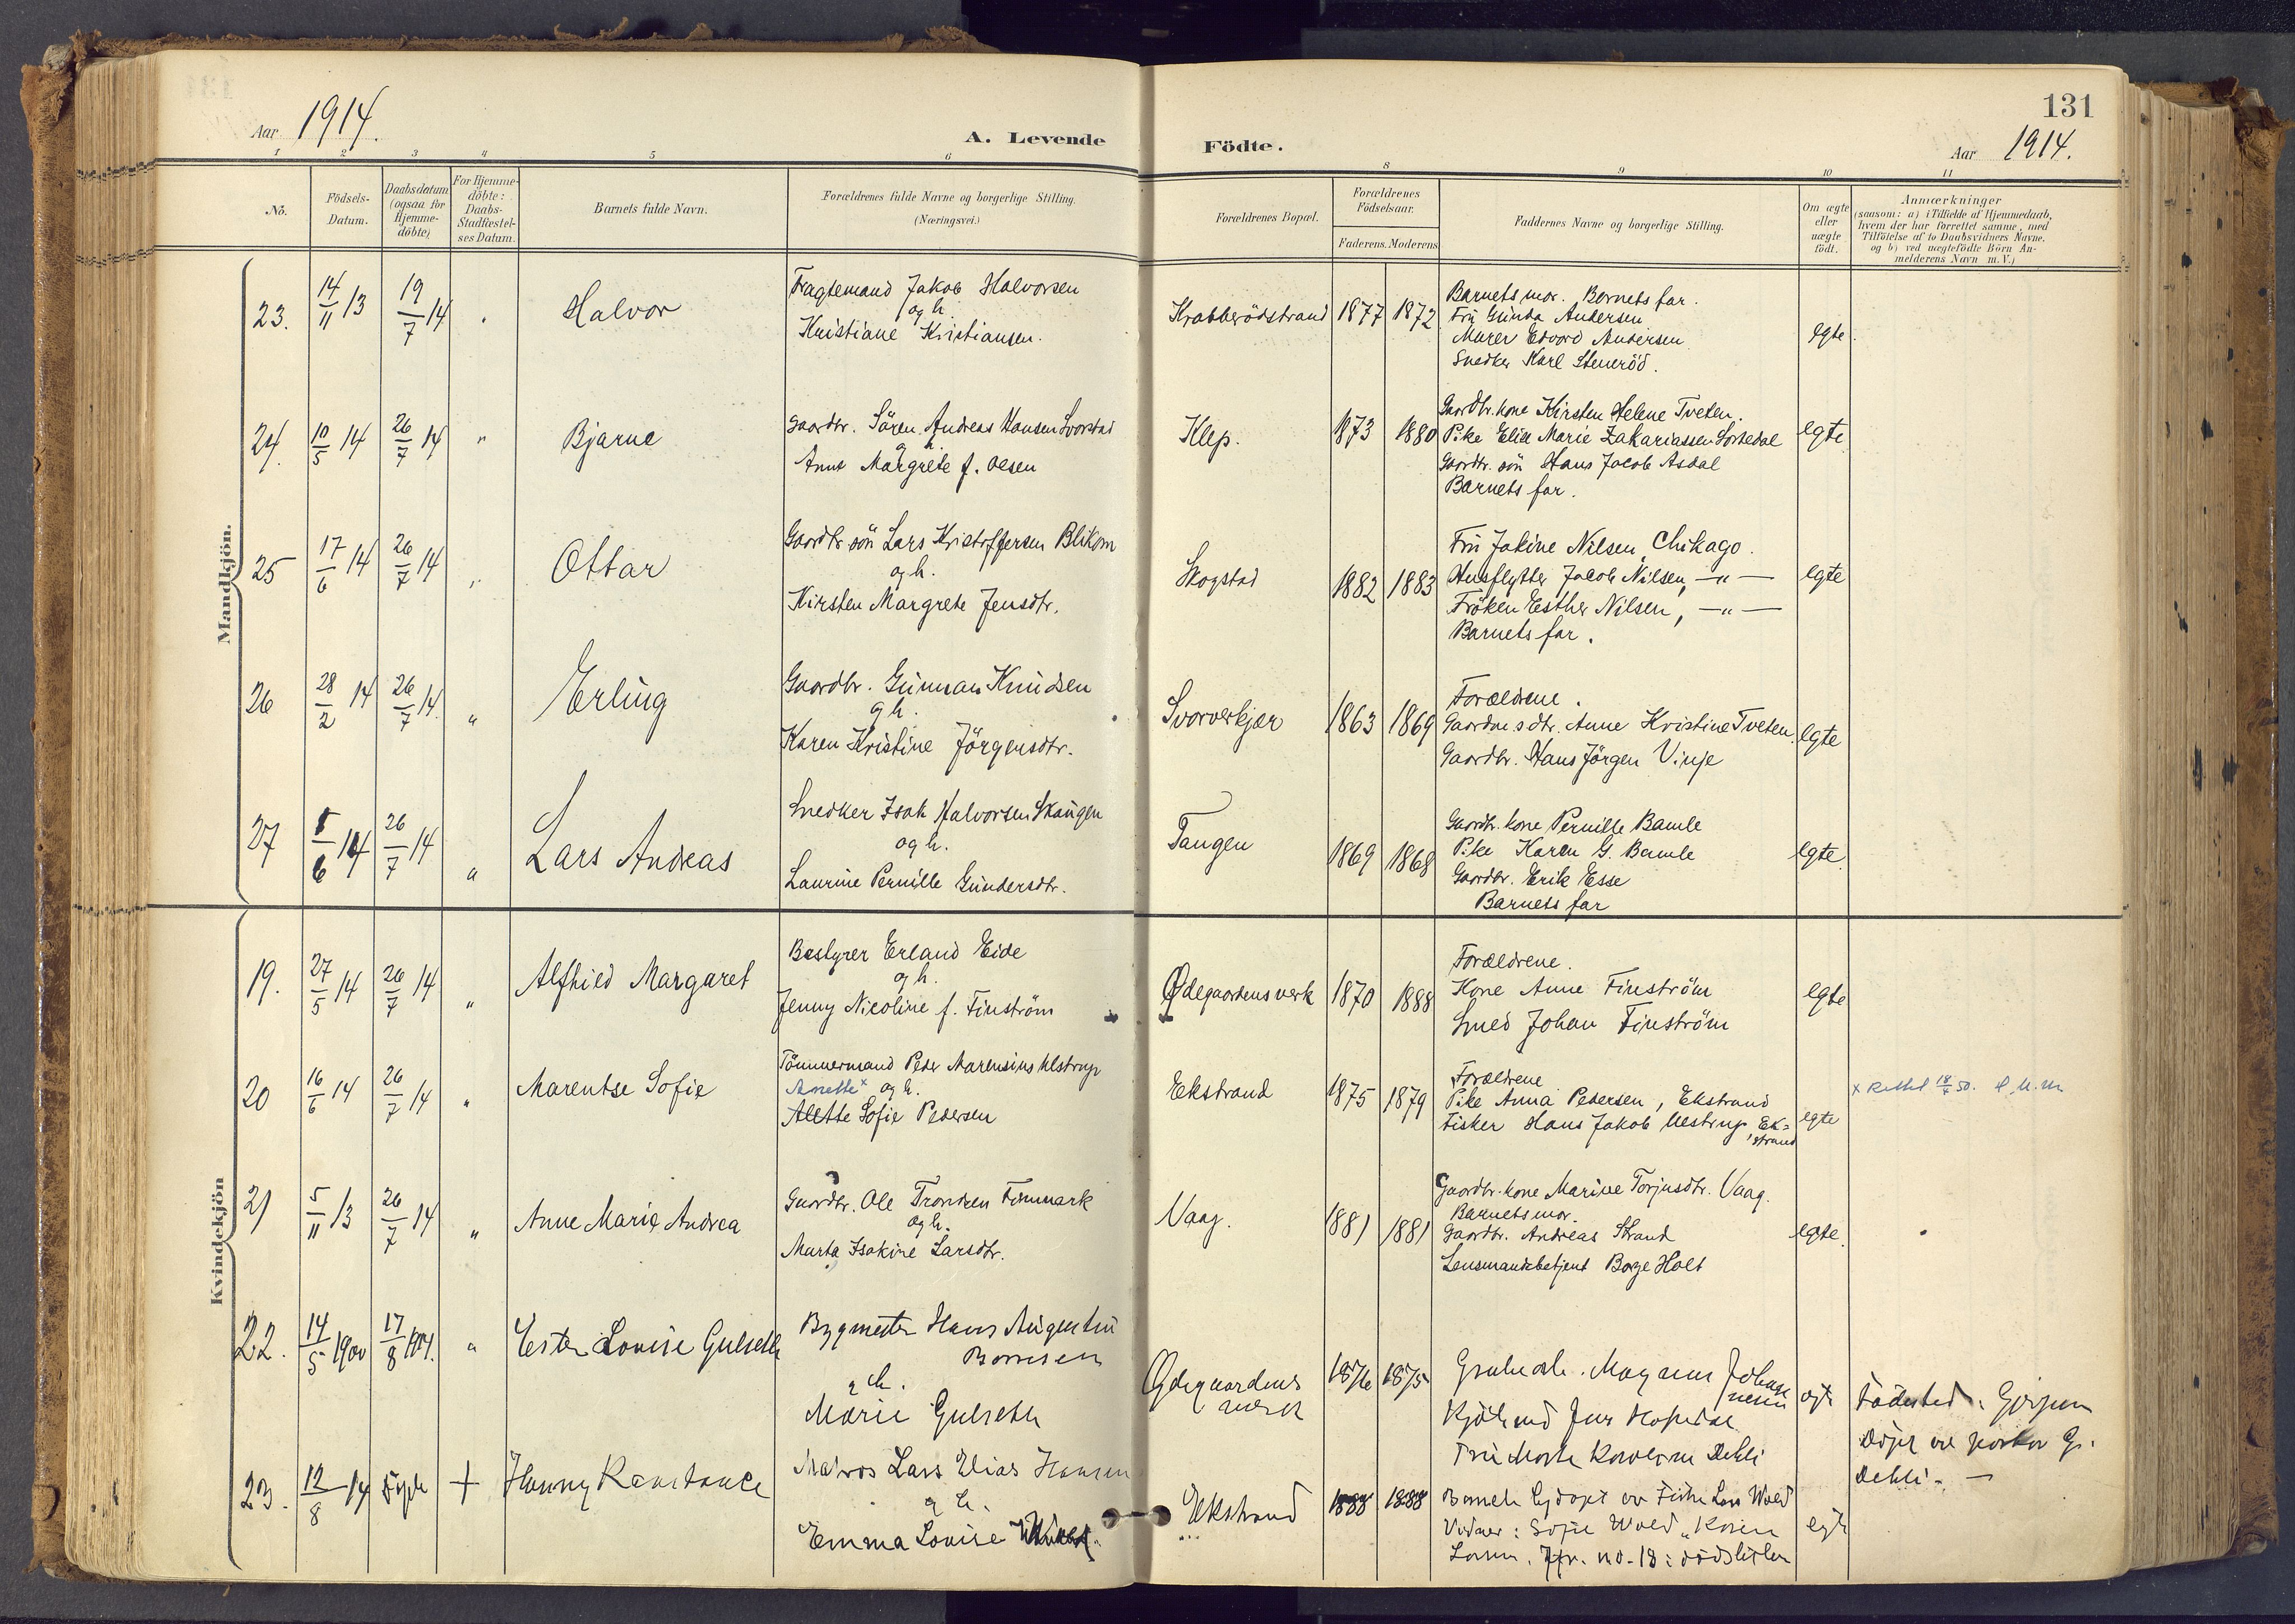 131
Aar 1914.
A. Levende Födte.
Aar 1914.
1 2 3 4 5 6 8 9 10 11
No.
Födsels-
Datum.
Daabsdatum
(ogsaa for
Hjemme-
döbte)
For Hjemme-
döbte:
Daabs-
Stadfæstel-
ses Datum.
Barnets fulde Navn.
Forældrenes fulde Navne og borgerlige Stilling.
(Næringsvei.)
Forældrenes Bopæl.
Forældrenes
Födselsaar.
Faderens. Moderens
Faddernes Navne og borgerlige Stilling.
Om ægte
eller
uægte
födt.
Anmærkninger
(saasom: a) i Tilfælde af Hjemmedaab,
hvem der har forrettet samme, med
Tilföielse af to Daabsvidners Navne.
og b) ved uægtefödte Börn An-
melderens Navn m. V.)
Mandkjön.
23. 14/11 13 19/7 14 Halvor
Fragtemand Jakob Halvorsen
og h.
Kristiane Kristiansen.
Krabberödstrand 1877 1872
Barnets mor. Barnets far.
Fru Gunda Andersen
Murer Edvard Andersen
Snedker Karl Steneröd.
egte.
24. 10/5 14 26/7 14 " Bjarne
Gaardbr. Sören Andreas Hansen Svorstad
og h.
Anne Margrete f. Olsen
Klep. 1873 1880
Gaardbr. kone Kirsten Helene Tveten.
Pike Elise Marie Zakariassen
Gaardbr. sön Hans Jacob Asdal
Barnets far.
egte
25 17/6 14 26/7 14 " Ottar
Gaardbr sön Lars Kristoffersen Blikom
og h.
Kirsten Margrete Jensdtr.
Skogstad 1882 1883
Fru Jakine Nilsen, Chikago.
Husflytter Jacob Nilsen, — " —
Fröken Esther Nilsen, — " —
Barnets far.
egte
26 28/2 14 26/7 14. " Erling
Gaardbr. Gunnar Knudsen
og h.
Karen Kristine Jörgensdtr.
Svorverkjær 1863 1869
Forældrene.
Gaardm.sdtr. Anne Kristine Tveten.
Gaardbr. Hans Jörgen Vinje
egte
27 /6 14 26/7 14 " Lars Andreas
Snedker Isak Halvorsen Skaugen
og h.
Laurine Pernille Gundersdtr.
Tangen 1869 1868
Gaardbr. kone Pernille Bamle
Pike Karen G. Bamle
Gaardbr. Erik Esse
Barnets far
egte
Kvindekjön
19. 27/5 14 26/7 14 " Alfhild Margaret
Bestyrer Erland Eide
og h.
Jenny Nicoline f. Finström
Ödegaardens verk 1870 1888
Forældrene.
Kone Anne Finström
Smed Johan Finström
egte
20 16/6 14 26/7 14 " Marentse Sofie
Tömmermand Peder Marensius Ulstrup
x og h.
Alette Sofie Pedersen
Ekstrand 1875 1879
Forældrene
Pike Anna Pedersen, Ekstrand
Fisker Hans Jakob Ulstrup Ek=
strand
egte
x Rettet 18/ 50.
21 5/11 13 26/7 14 " Anne Marie Andrea
Gaardbr. Ole Trondsen Finmark
og h.
Marta Isakine Larsdtr.
Vaag. 1881 1881
Gaardbr. kone Marine Torjusdtr. Vaag.
Barnets mor.
Gaardbr. Andreas Strand
Lensmandsbetjent Borge Holt
egte.
22. 14/5 1900 17/8 1914. " Ester Louise Gulseth
Bygmester Hans Augustin
Bomesen
og h.
Marie Gulseth
Ödegaardens
verk
1876 1875
Grubearb. Magnus Johan
nesen
Kjöbmd Jens
Fru Marte Karoline Dehli
egte
Födested: Gjerpen
Döpt av pastor G.
Dehli. —
23. 12/8 14 + Hanny Konstance
Matros Lars Elias Hansen
og h.
Emma Louise
Ekstrand 1888 1888
Barnet hjdöpt av Fisker Lars Wold
Vidner: Sofie Wold, Karen
Larsen. Jfr. no. 18: dödsliste
egte